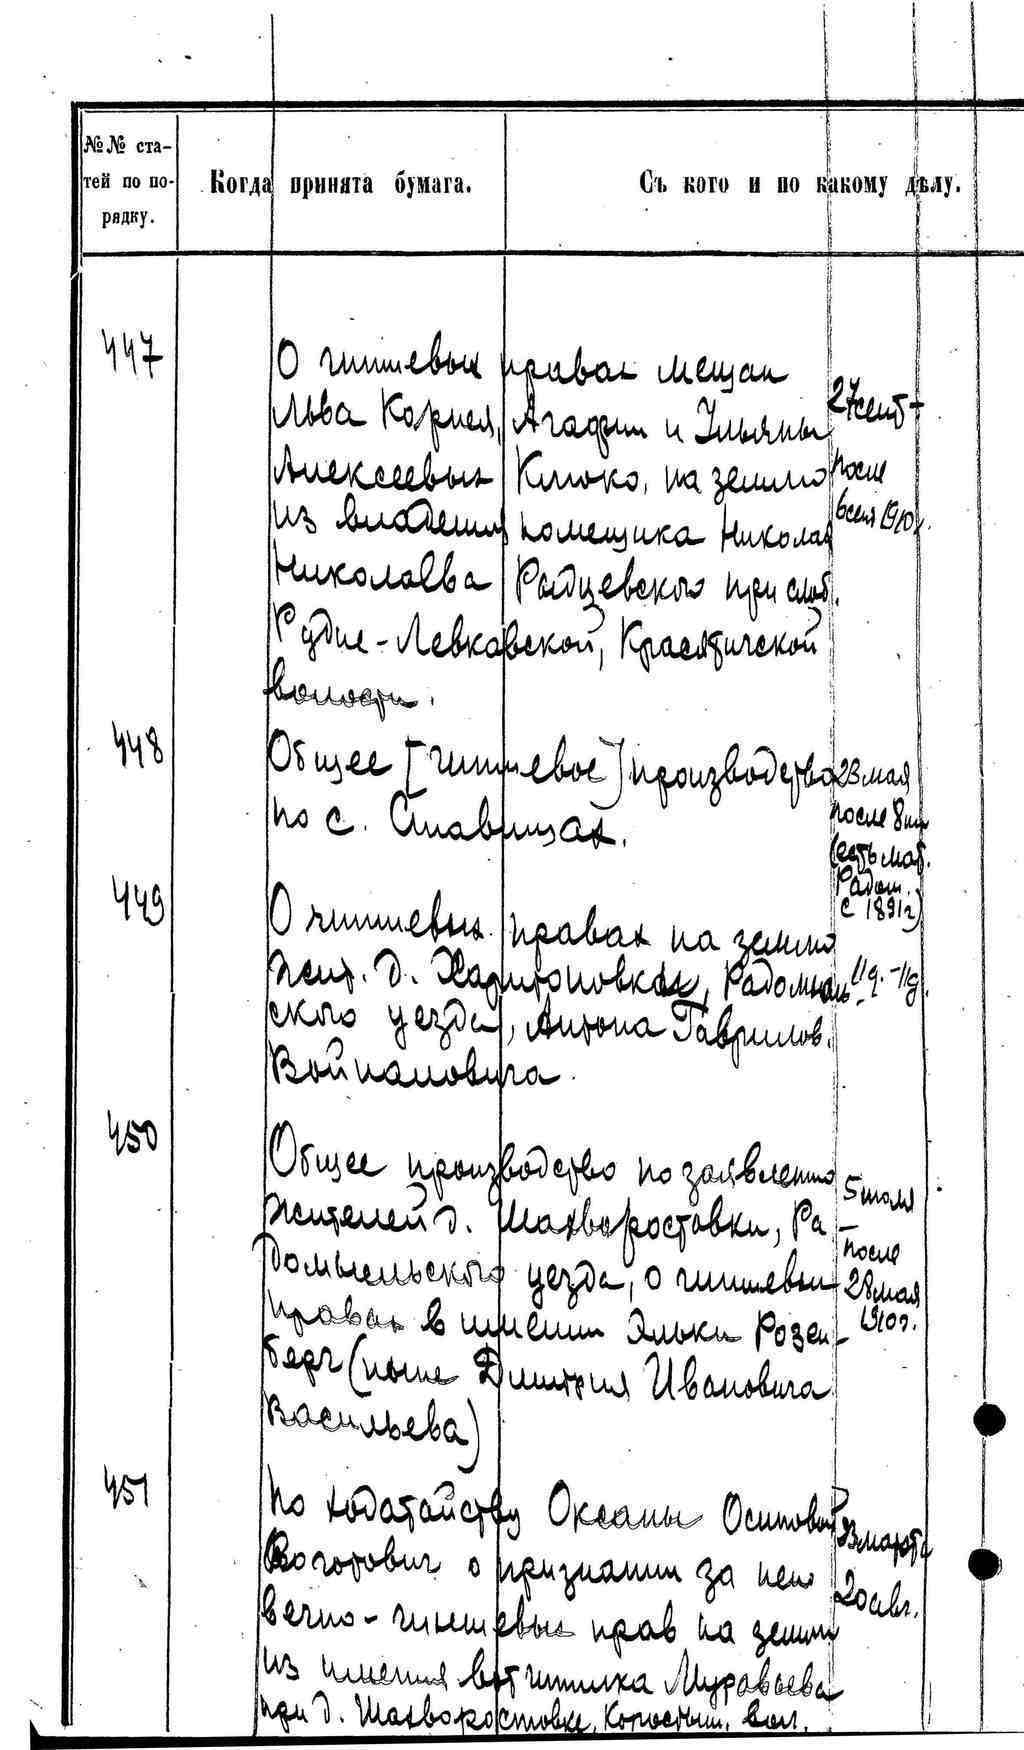 №№ ста-
тей по по-
рядку.
Когда принята бумага.
Съ кого и по какому дѣлу.
447
О чиншевых правах мещан
Льва Корнея, Агафии и Ульяны
Алексеевых Клюко, на землю
из владения помещика Николая
Николаева Радцевского при слоб.
Рудне-Левковской, Красятичской
волости.
27 сент-
после
6 сент 1910 г.
448
Общее [чиншевое] производство
по с. Ставищах.
23 мая
после 8
(есть мат.
Радом.
с 1891 г)
449
О чиншевых правах на землю
жит. д. Харитоновках, Радомысль-
ского уезда, Антона Гаврилов.
Войналовича.
11 д.-11 д.
450
Общее производство по заявлению
жителей д. Шахворостовки, Ра-
домысльского уезда, о чиншевых
правах в имении Эльки Розен-
берг (ныне Дмитрия Ивановича
Васильева)
5 июля
-после
28 мая
1910 г.
451
По ходатайству Оксаны Осиповой
о признании за нею
вечно-чиншевых прав на землю
из имения вотчинника Муравьева
при д. Шахворостовке, Коростыш. вол.
23 марта
20 авг.